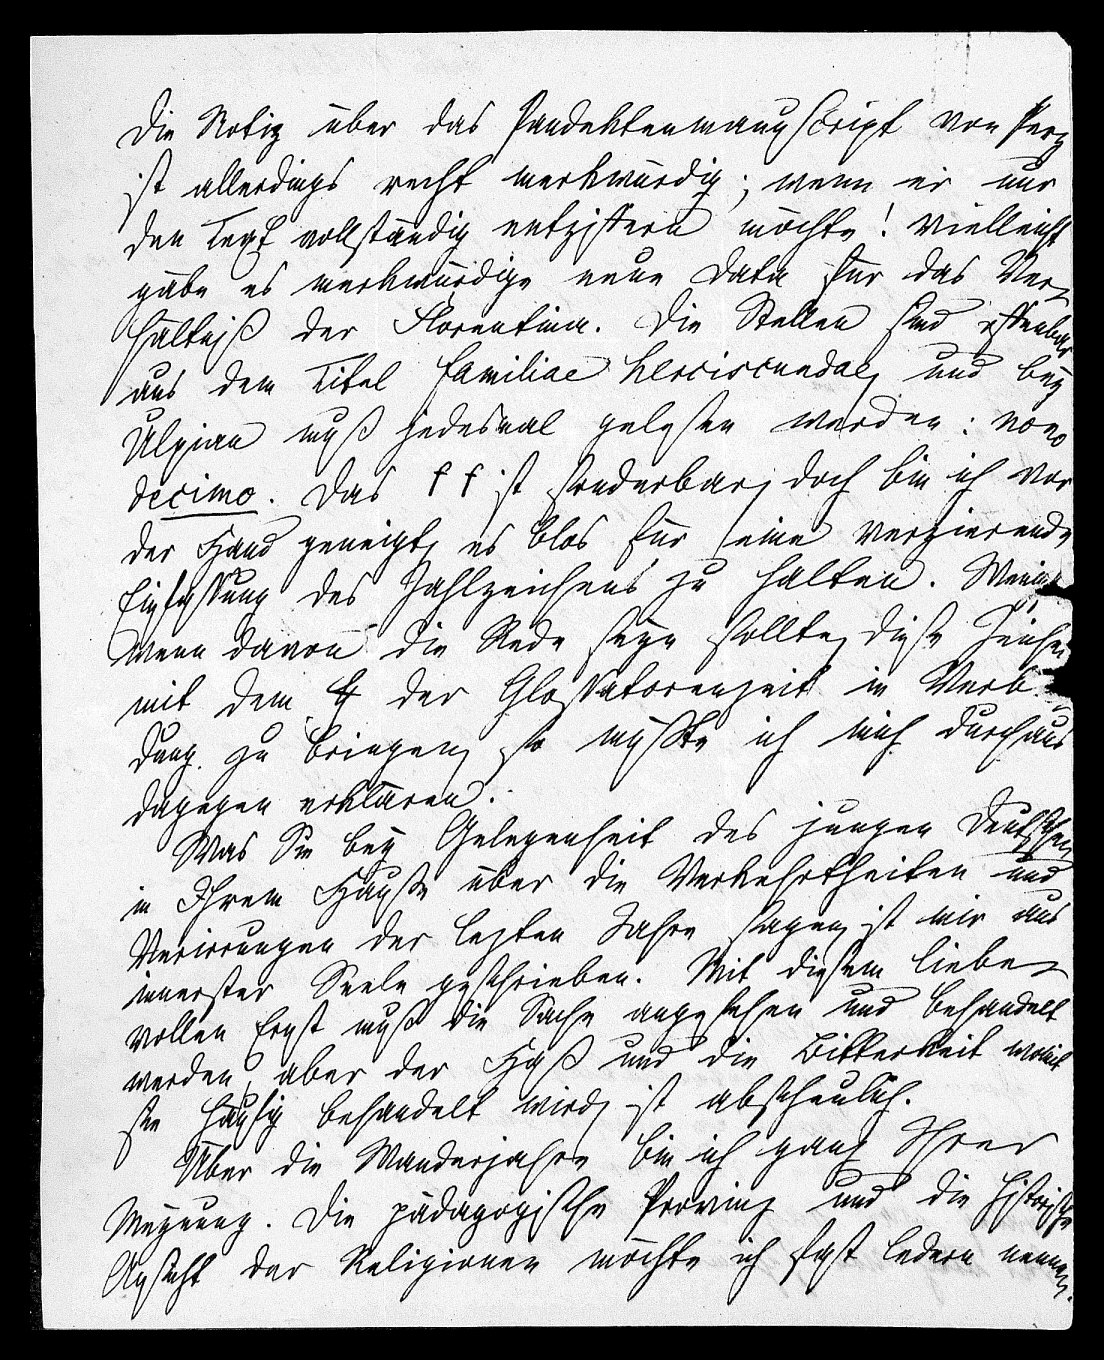 Die Notiz über das Pandektenmanuscript von Perz
ist allerdings recht merkwürdig; wenn er nur
den Text vollständig entziffern möchte! Vielleicht
gäbe es merkwürdige neue Data für das Ver-
hältniß der Florentina. Die Stellen sind offenbar
aus dem Titel familiae herciscundae, und bey
Ulpian muß jedesmal gelesen werden: nono
decimo. Das f f ist sonderbar, doch bin ich vor
der Hand geneigt, es blos für eine verzierende
Einfassung des Zahlzeichens zu halten.
wenn davon die Rede seyn sollte, diese
mit dem ff der Glossatorenzeit in Verb
dung zu bringen, so müßte ich mich durchaus
dagegen erklären.
Was Sie bey Gelegenheit des jungen Deutschen
in Ihrem Hause über die Verkehrtheiten und
Verirrungen der lezten Jahre sagen, ist mir aus
innerster Seele geschrieben. Mit diesem liebe-
vollen Ernst muß die Sache angesehen und behandelt
werden, aber der Haß und die Bitterkeit womit
sie häufig behandelt wird, ist abscheulich.
Über die Wanderjahre bin ich ganz Ihrer
Meynung. Die pädagogische Provinz und die historische
Ansicht der Religionen möchte ich fast ledern nennen.